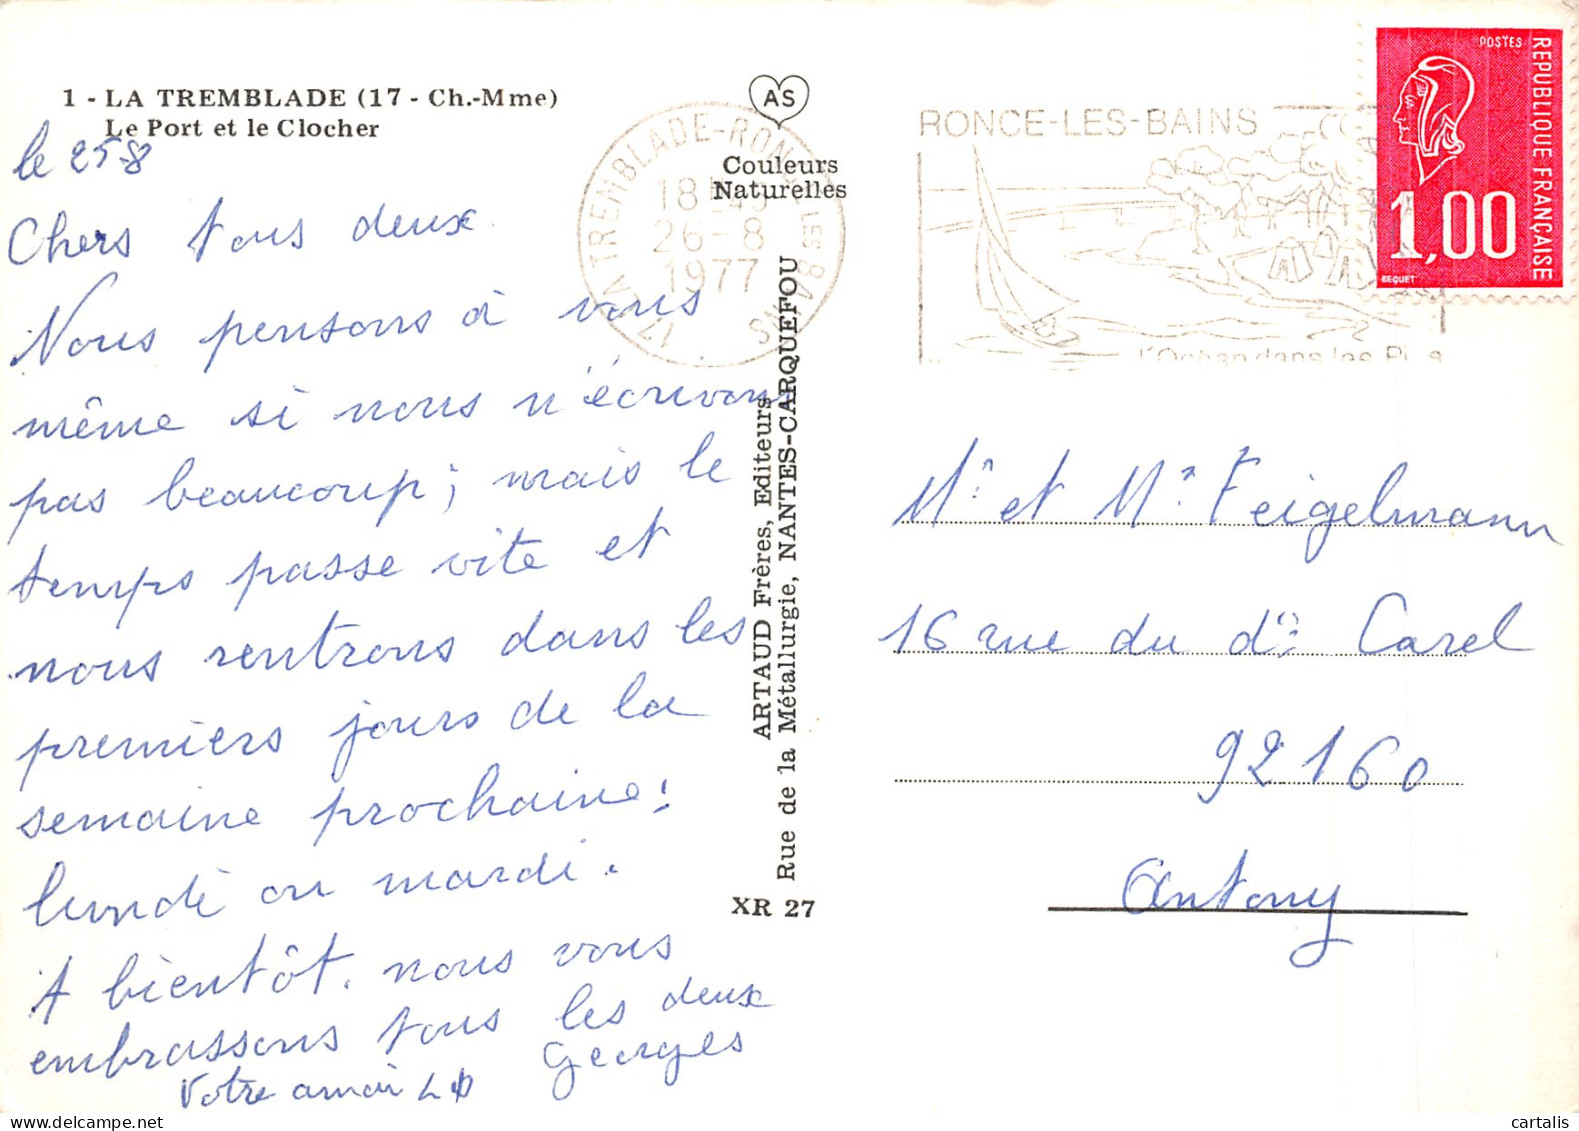 1 - LA TREMBLADE (17 - Ch.-Mme)
Le Port et le Clocher
le 25-8
Chers tous deux
Nous pensons à vous
même si nous n'écrivons
pas beaucoup; mais le
temps passe vite et
nous rentrons dans les
premiers jours de la
semaine prochaine:
lundi ou mardi.
A bientôt. nous vous
embrassons tous les deux
Georges
Votre
AS
Couleurs
Naturelles
ARTAUD Frères, Editeurs
Rue de la Métallurgie, NANTES-CARQUEFOU
XR 27
17 LA TREMBLADE-RONCE LES BAINS
18
26-8
1977
RONCE-LES-BAINS
l'Océan dans les
POSTES
REPUBLIQUE FRANÇAISE
1,00
BEQUET
Mr et Mr Feigelmann
16 rue du dr Carel
92160
Antony
cartalis
www.delcampe.net